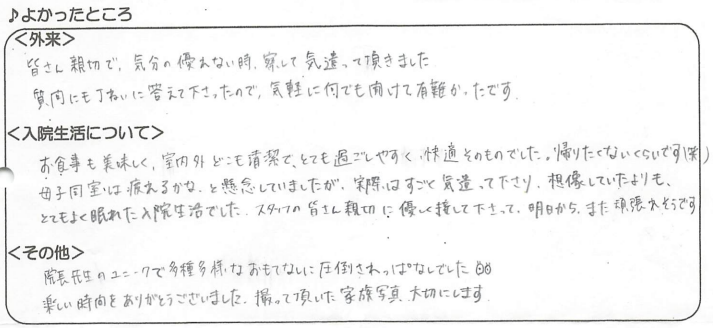 ♪よかったところ
＜外来＞
皆さん親切で、気分の優れない時、察して気遣って頂きました
質問にも丁ねいに答えて下さったので、気軽に何でも聞けて有難かったです.
＜入院生活について＞
お食事も美味しく、室内外どこも清潔で、とても過ごしやすく、快適そのものでした。帰りたくないくらいです(笑)
母子同室は疲れるかな、と懸念していましたが、実際はすごく気遣って下さり、想像していたよりも、
とてもよく眠れた入院生活でした. スタッフの皆さん親切に優しく接して下さって、明日から、また頑張れそうです
＜その他＞
院長先生のユニークで多種多様なおもてなしに圧倒されっぱなしでした
楽しい時間をありがとうございました. 撮って頂いた家族写真、大切にします.